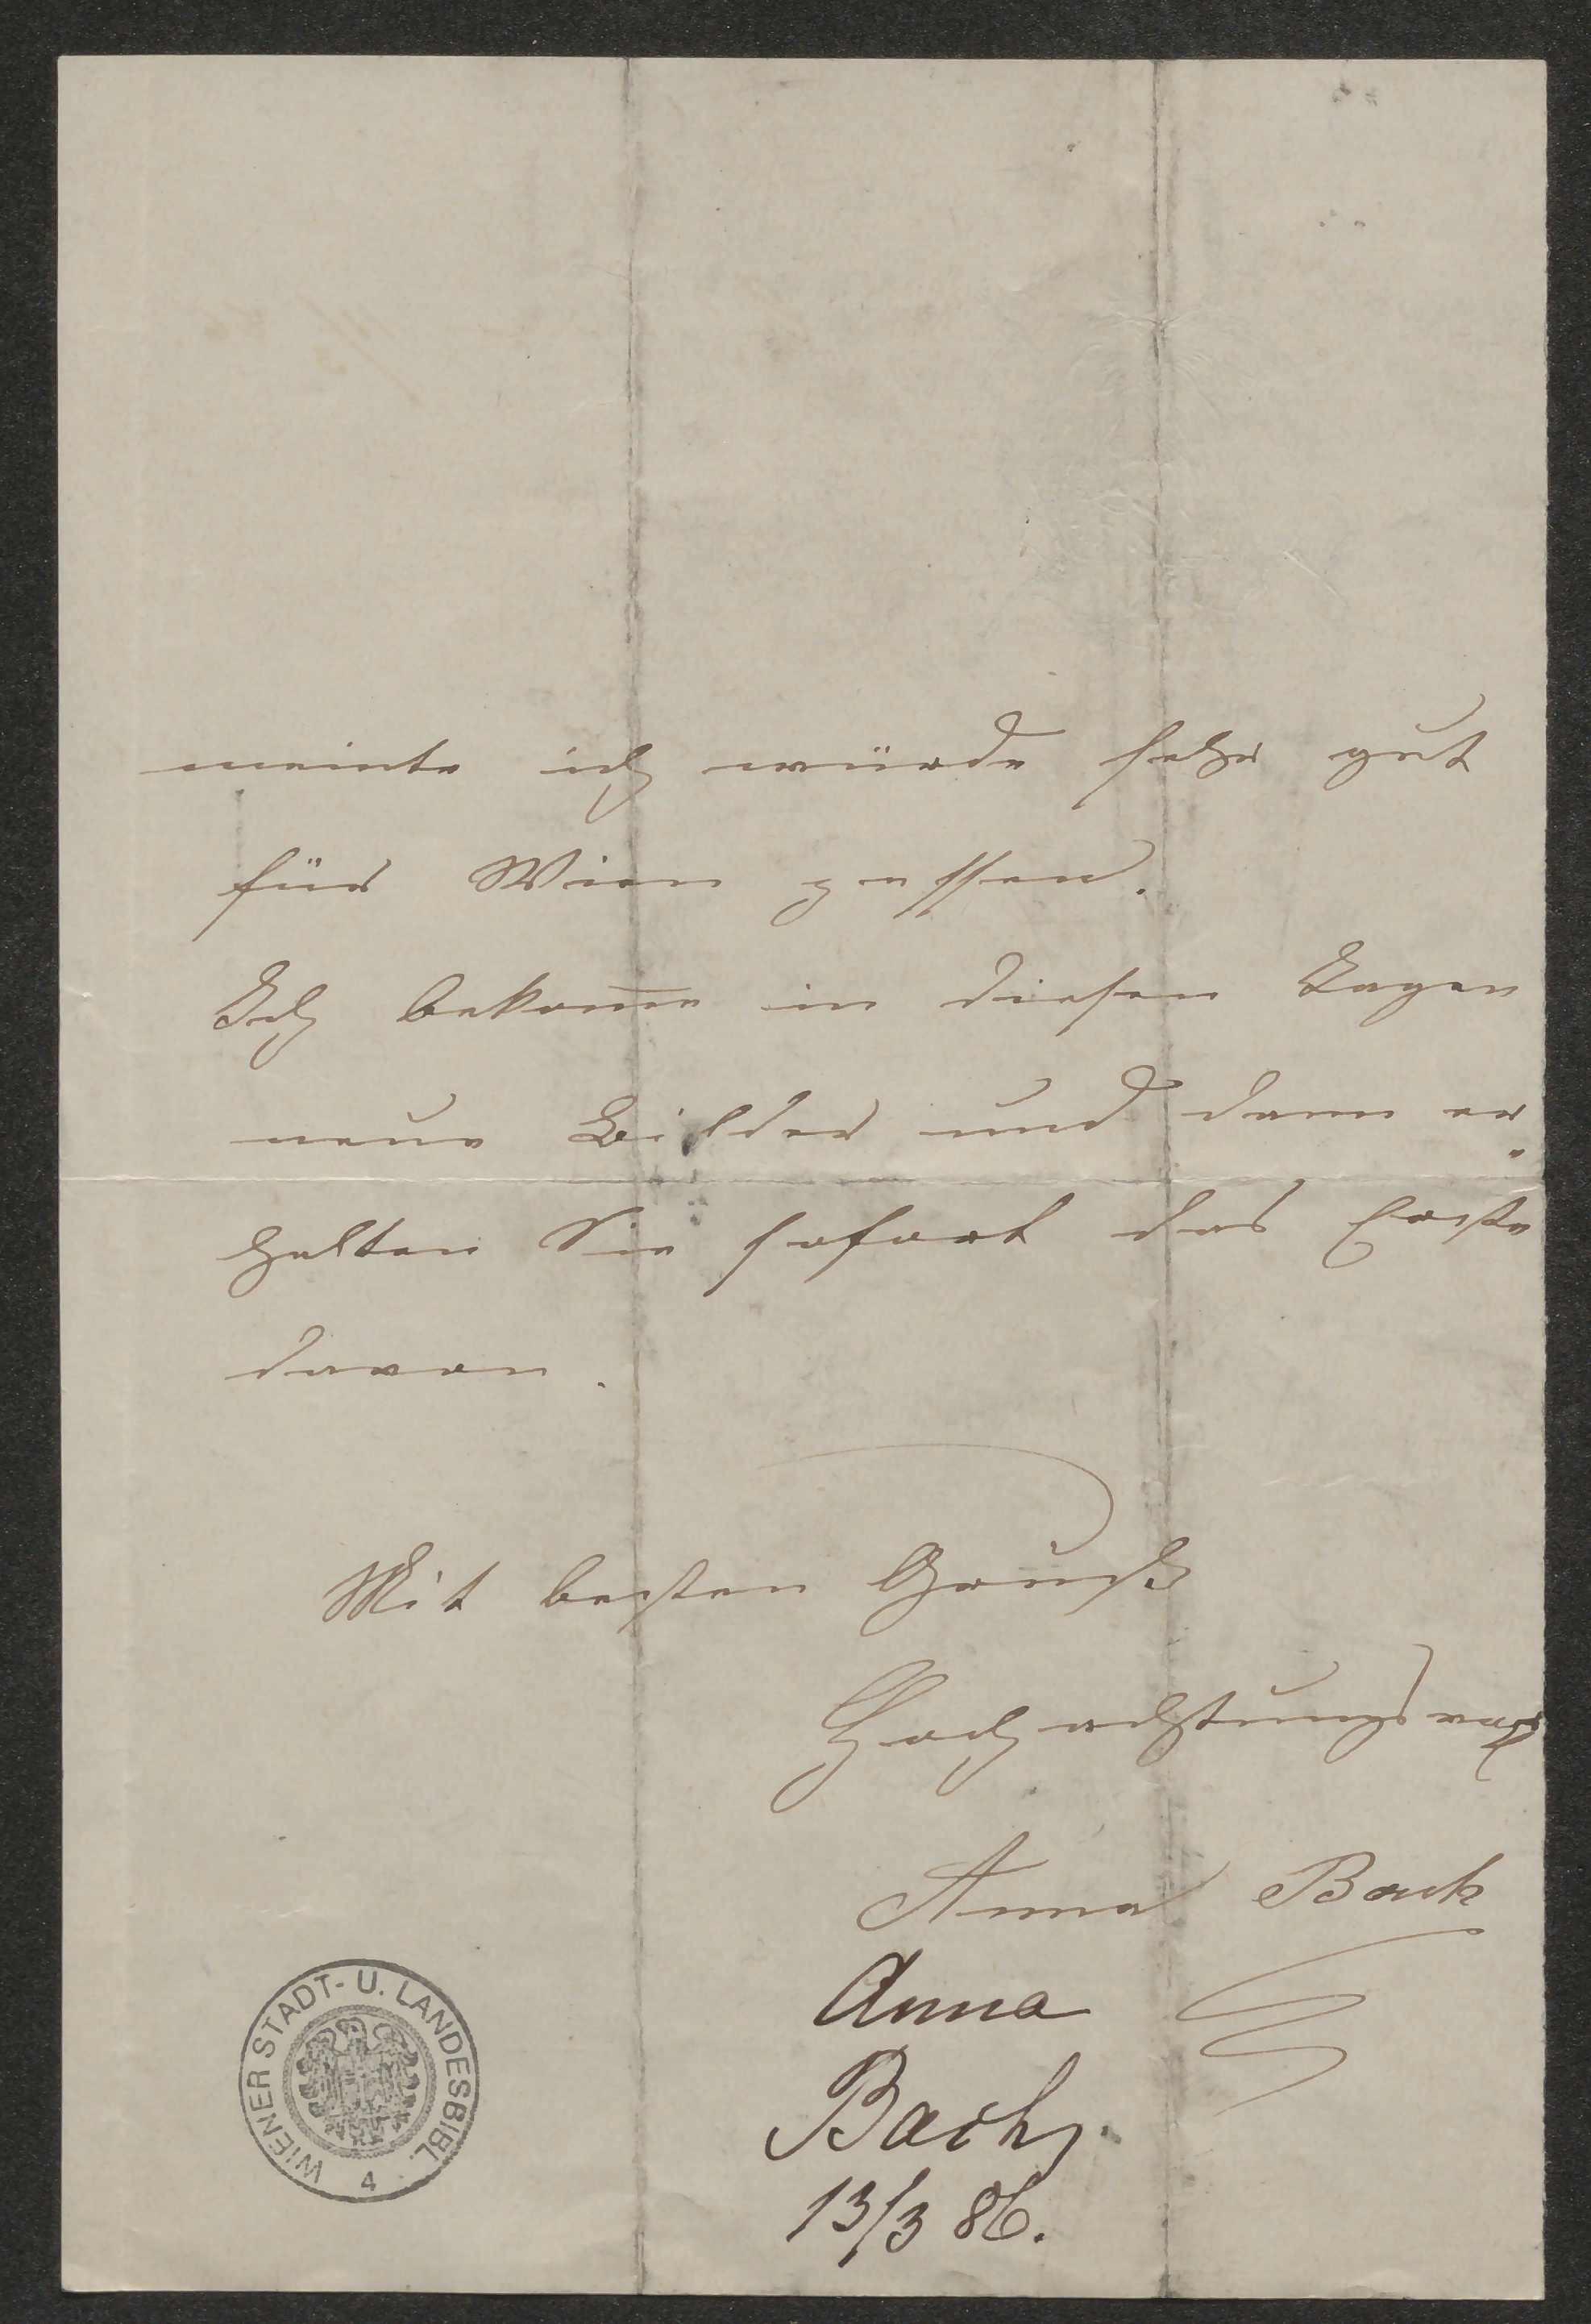 meinte ich würde sehr gut
für Wien passen.
Ich bekom̅e in diesen Tagen
neue Bilder und dann er-
halten Sie sofort das Erste
davon.
Mit besten Gruß
Hochachtungsvoll
Anna Bach
Anna
Bach
13/3 86.
WIENER STADT- U. LANDESBIBL.
4